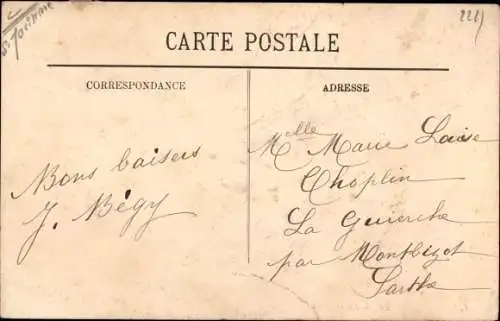 2221
CARTE POSTALE
CORRESPONDANCE
ADRESSE
Bons baisers
J. Bégy
Melle Marie Louise
Choplin
La Guierche
par Montbizot
Sarthe